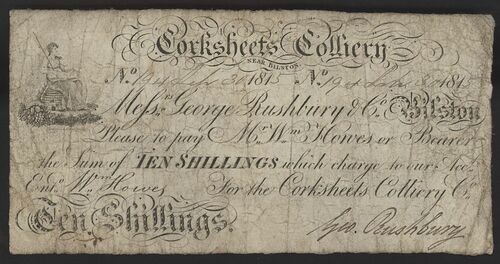 Corksheets Colliery
NEAR BILSTON
No. 1815 No. 1815
Messrs. George Rushbury & Co. Bilston
Please to pay Mr. Wm. Howes or Bearer
the Sum of TEN SHILLINGS which charge to our Acc.
Entd. Wm. Howes For the Corksheets Colliery Co.
Ten Shillings. Geo. Rushbury